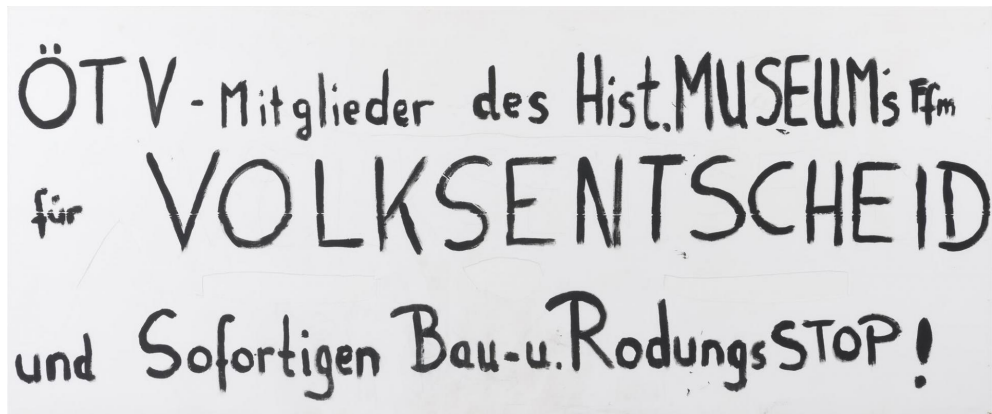 ÖTV - Mitglieder des Hist. MUSEUM's Ffm
für VOLKSENTSCHEID
und Sofortigen Bau-u. RodungsSTOP!